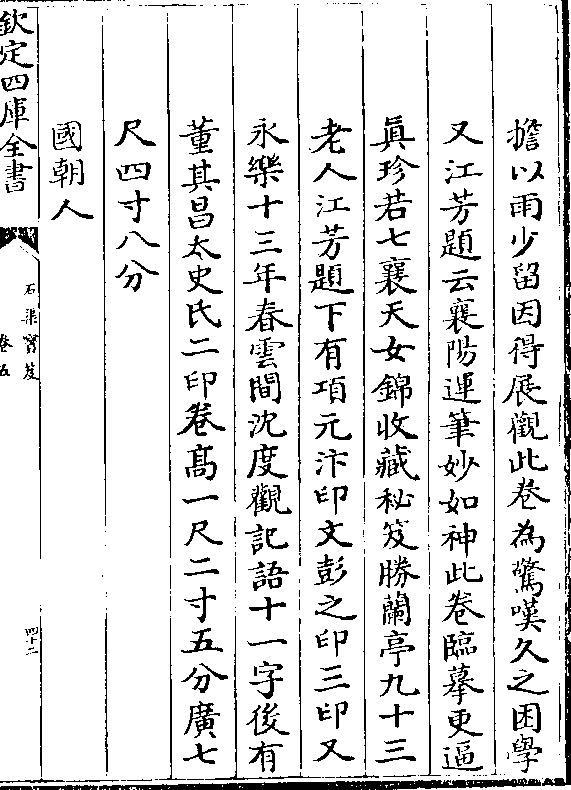 擔以雨少留因得展觀此卷為驚嘆久之困學
又江芳題云襄陽運筆妙如神此卷臨摹更逼
眞珍若七襄天女錦收藏秘笈勝蘭亭九十三
老人江芳題下有項元汴印文彭之印三印又
永樂十三年春雲間沈度觀記語十一字後有
董其昌太史氏二印卷高一尺二寸五分廣七
尺四寸八分
國朝人
欽定四庫全書
石渠寳笈
卷五
四十二